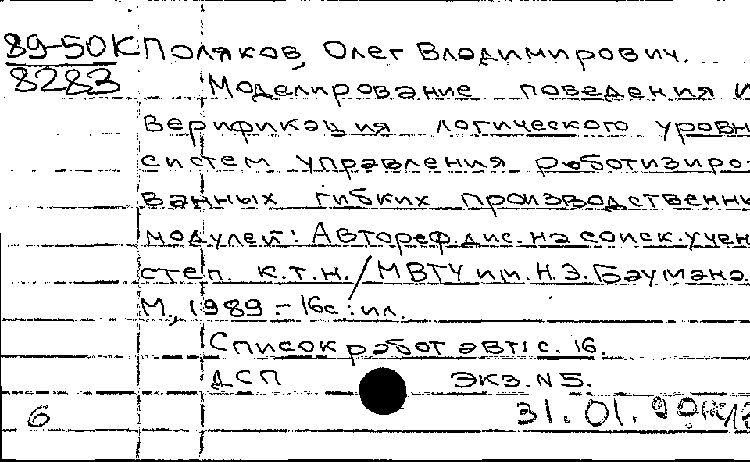 89-50К Поляков, Олег Владимирович.
8283 Моделирование поведения и
верификация логического уровн
систем управления роботизиро-
ванных гибких производственны
модулей: Автореф.дис.на соиск.учен
степ. к.т.н./МВТУ им.Н.Э.Баумана.
М., 1989.-16с.:ил.
Список работ авт: с. 16.
ДСП экз.N5.
6 31.01.90